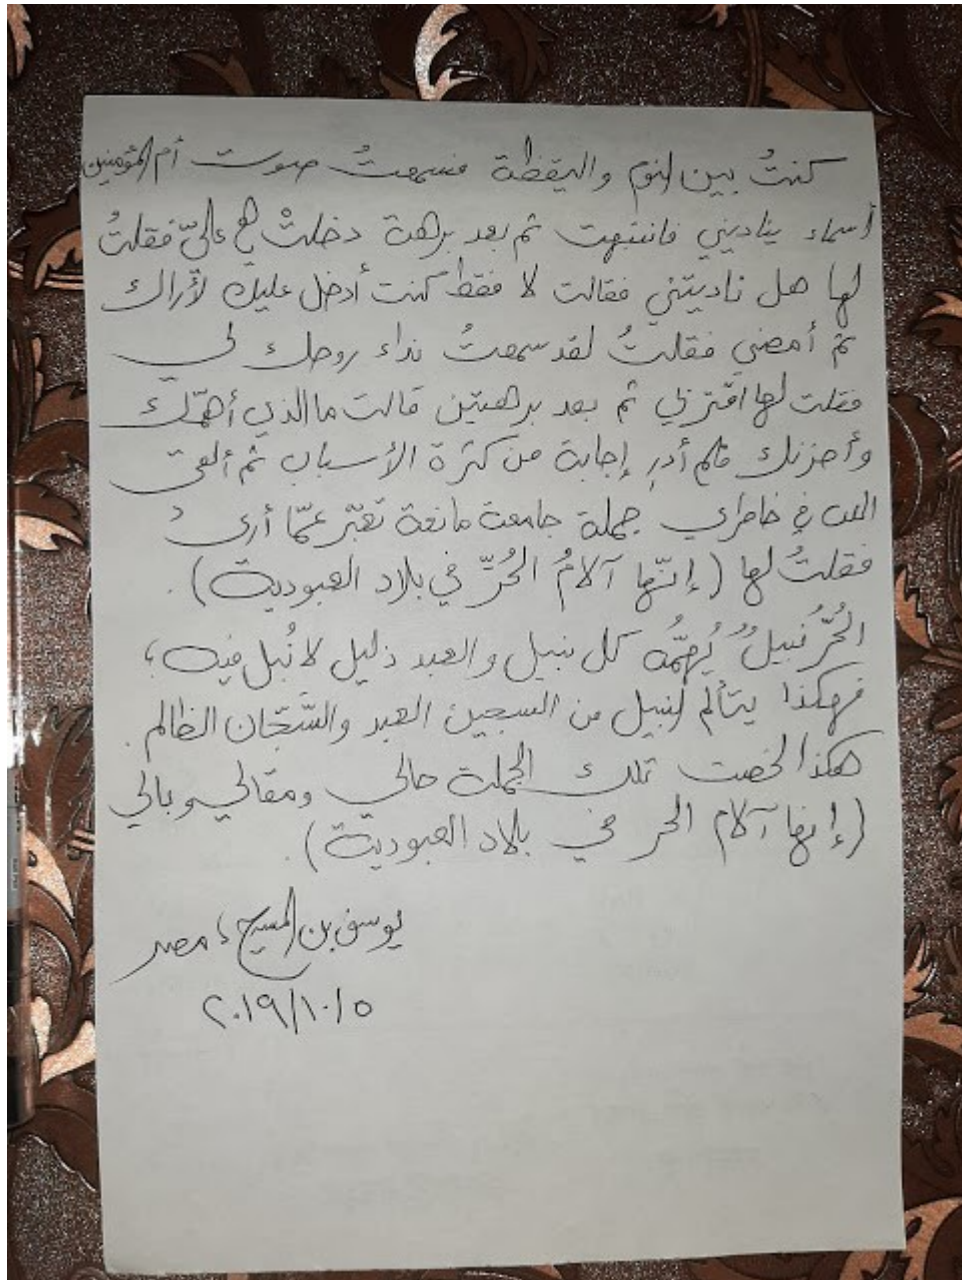 كنتُ بين النوم واليقظة فسمعتُ صوت أم المؤمنين
أسماء يناديني فانتبهت ثم بعد برهة دخلتْ هي عليّ فقلتُ
لها هل ناديتني فقالت لا فقط كنت أدخل عليك لأراك
ثم أمضي فقلتُ لقد سمعتُ نداء روحك لي
فقلت لها اقتربي ثم بعد برهتين قالت ما الذي أهمّك
وأحزنك فلم أدرِ إجابة من كثرة الأسباب ثم ألقى
الله في خاطري جملة جامعة مانعة تعبّر عمّا أرى
فقلتُ لها (إنّها آلامُ الحُرّ في بلاد العبودية).
الحُرّ نبيلٌ يُهمُّه كل نبيل والعبد ذليل لا نُبل فيه ؛
فهكذا يتألم النبيل من السجين العبد والسّجّان الظالم .
هكذا لخصت تلك الجملة حالي ومقالي وبالي
(إنها آلام الحر في بلاد العبودية).
يوسف بن المسيح ، مصر
٢٠١٩/١٠/٥